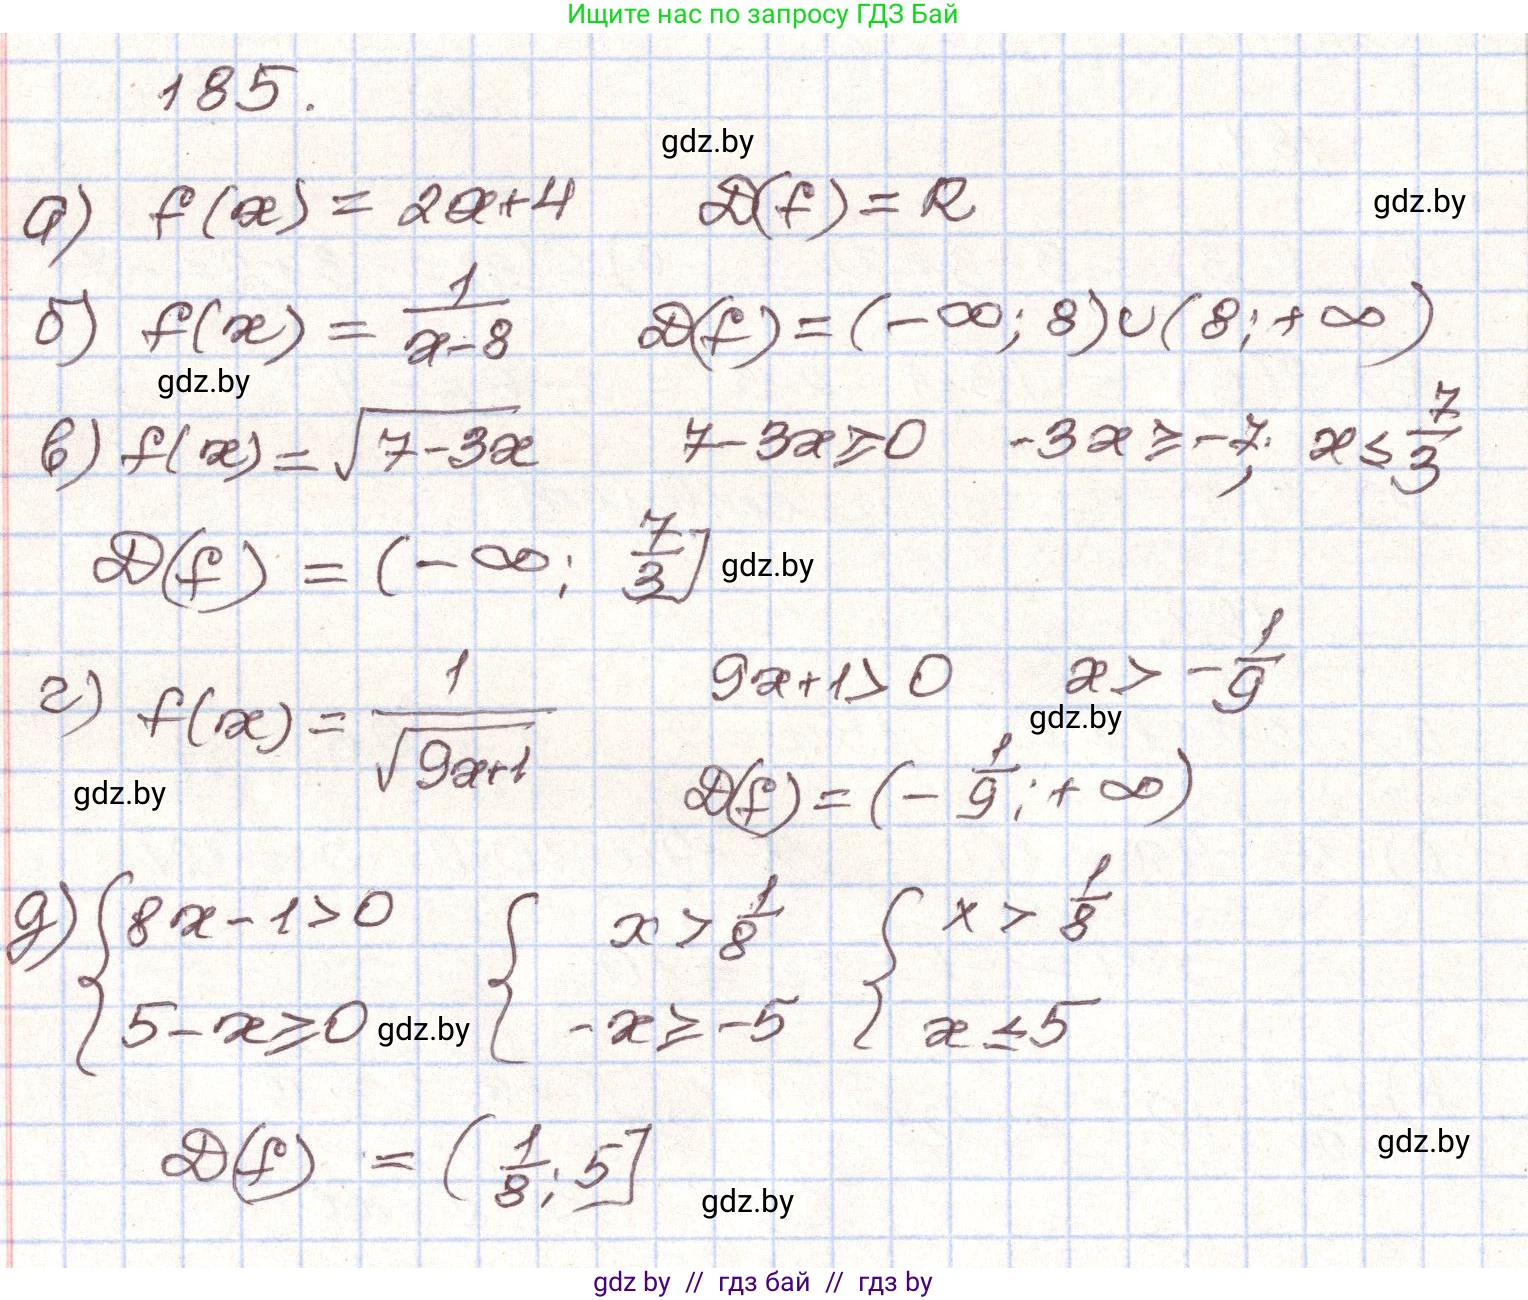 Ищите нас по запросу ГДЗ Бай
185.
gdz.by
а) f(x) = 2x+4 D(f) = R gdz.by
б) f(x) = 1/(x-8) D(f) = (-∞; 8)∪(8; +∞)
gdz.by
в) f(x) = √(7-3x) 7-3x≥0 -3x≥-7; x≤7/3
D(f) = (-∞; 7/3] gdz.by
г) f(x) = 1/√(9x+1) 9x+1>0 x>-1/9
gdz.by
gdz.by D(f) = (-1/9; +∞)
д) { 8x-1>0 { x>1/8 { x>1/8
5-x≥0 gdz.by -x≥-5 x≤5
D(f) = (1/8; 5] gdz.by
gdz.by
gdz by // гдз бай // гдз by